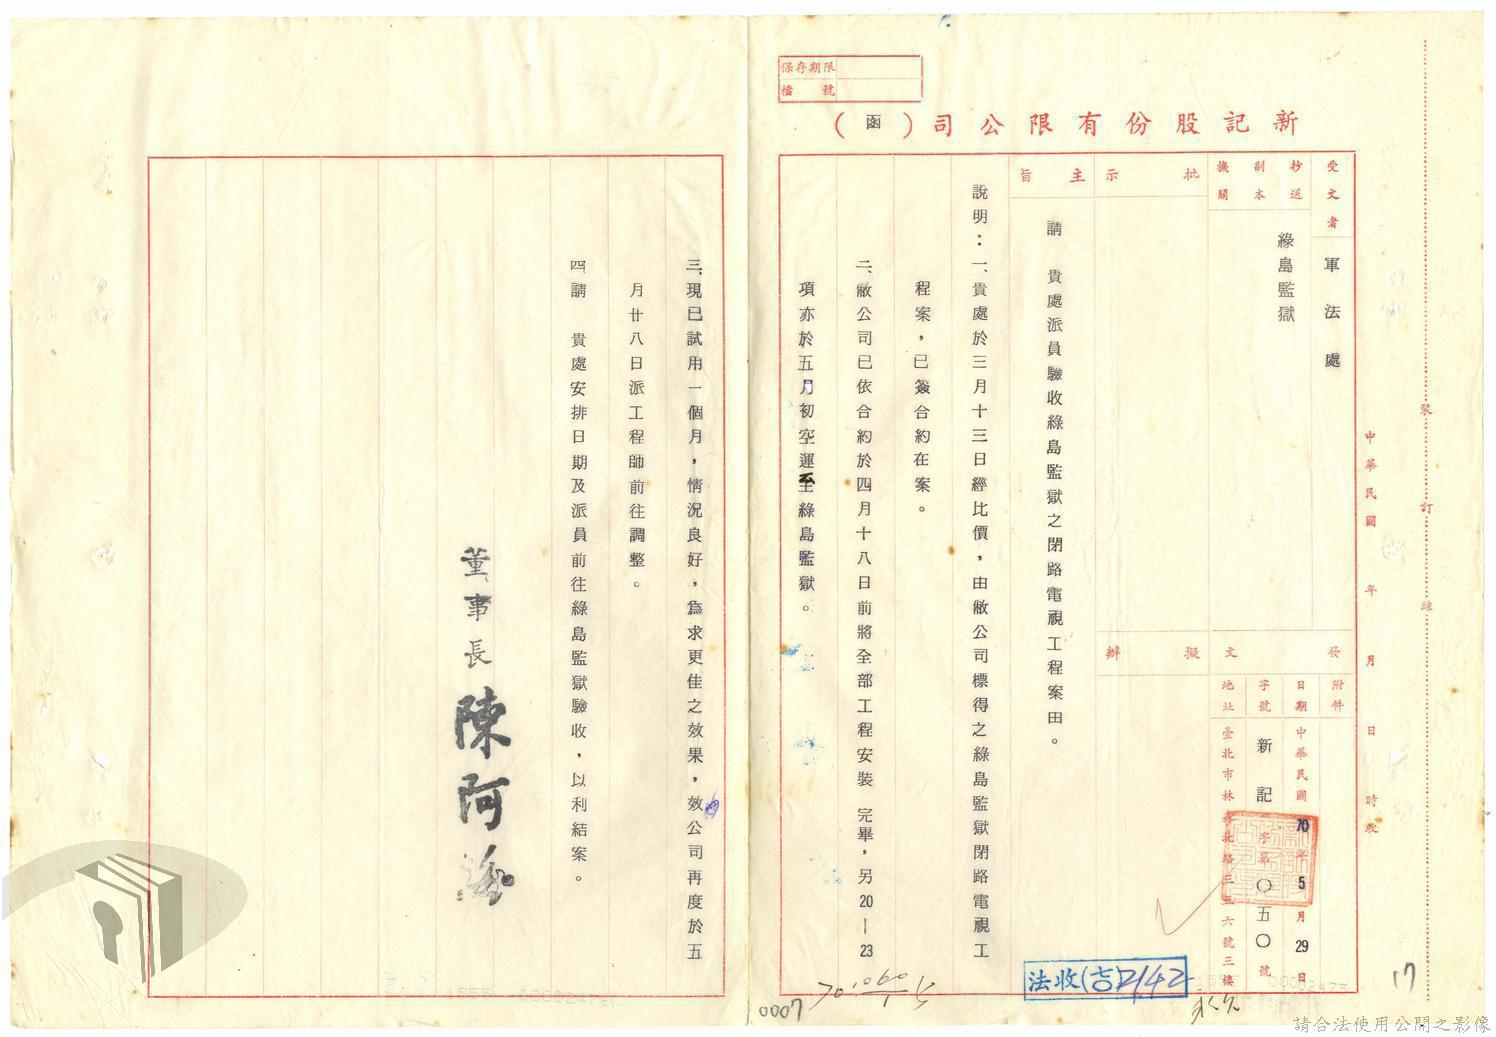 保存期限
檔號
新記股份有限公司（函）
受文者
軍法處
抄送
副本
機關
綠島監獄
批示
擬辦
發文
附件
日期
中華民國70年5月29日
字號
新記字第〇五〇號
地址
臺北市林森北路三五六號三樓
主旨
請　貴處派員驗收綠島監獄之閉路電視工程案由。
說明：一、貴處於三月十三日經比價，由敝公司標得之綠島監獄閉路電視工
程案，已簽合約在案。
二、敝公司已依合約於四月十八日前將全部工程安裝 完畢，另20—23
項亦於五月初空運至綠島監獄。
三、現已試用一個月，情況良好，為求更佳之效果，效公司再度於五
月廿八日派工程師前往調整。
四請　貴處安排日期及派員前往綠島監獄驗收，以利結案。
董事長 陳阿海
中華民國　年　月　日　時收
裝訂線
法收(吉)2142
永久
17
0007
請合法使用公開之影像